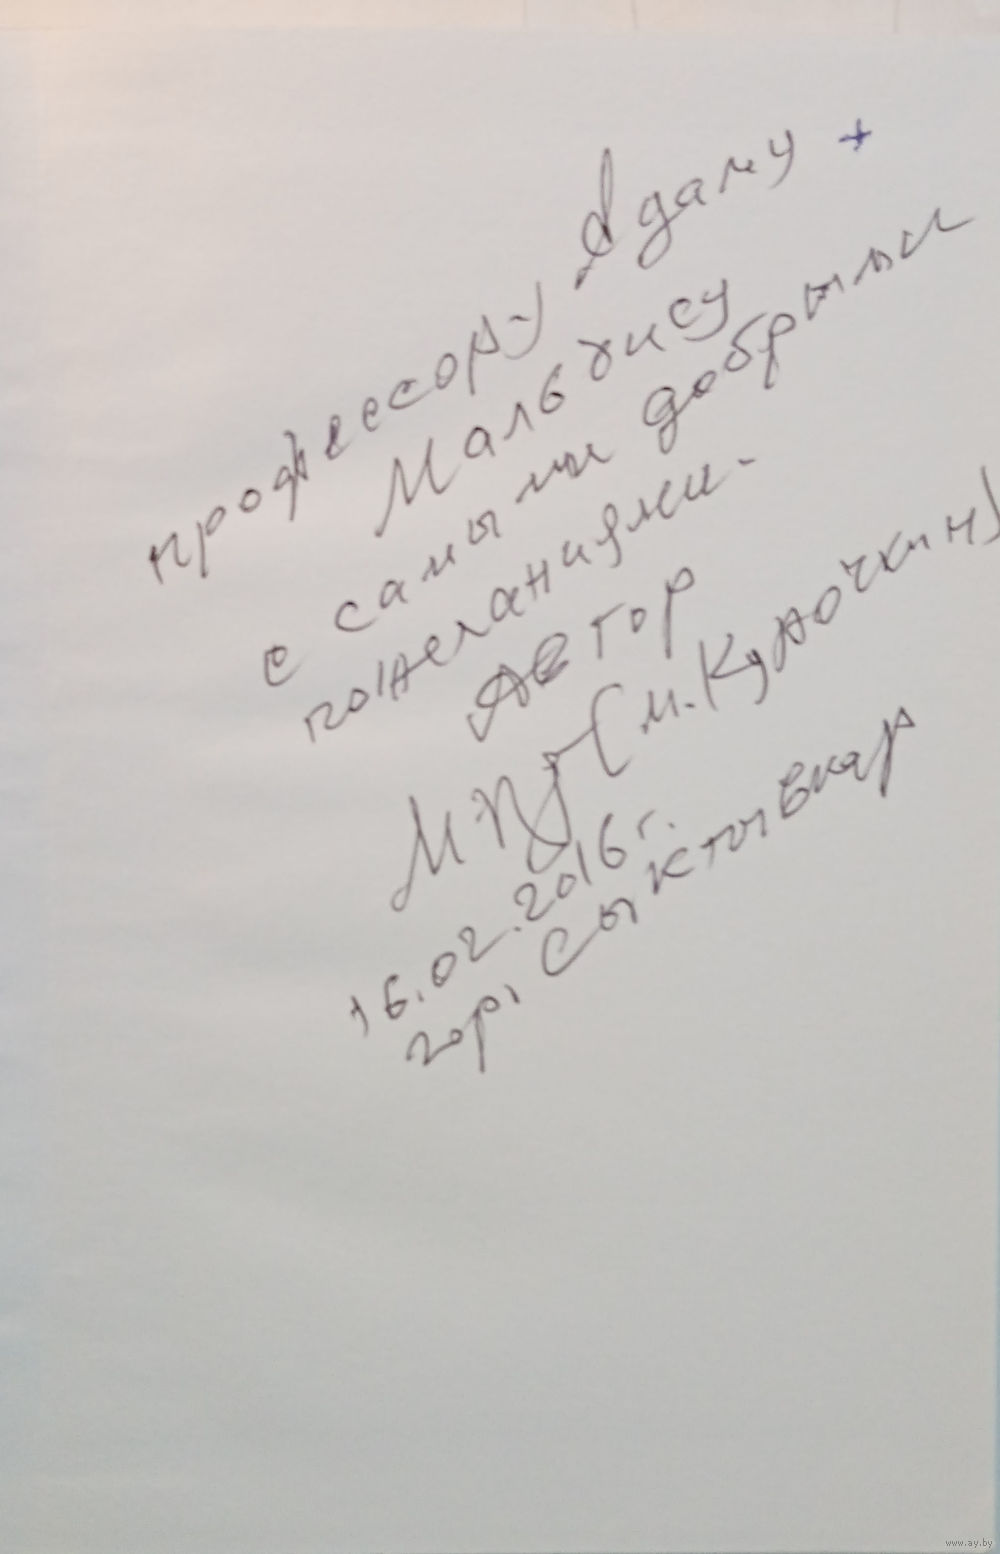 профессору Адаму +
Мальдису
с самыми добрыми
пожеланиями.-
Автор
(М. Курочкин)
16.02.2016 г.
гор. Сыктывкар
www.ay.by